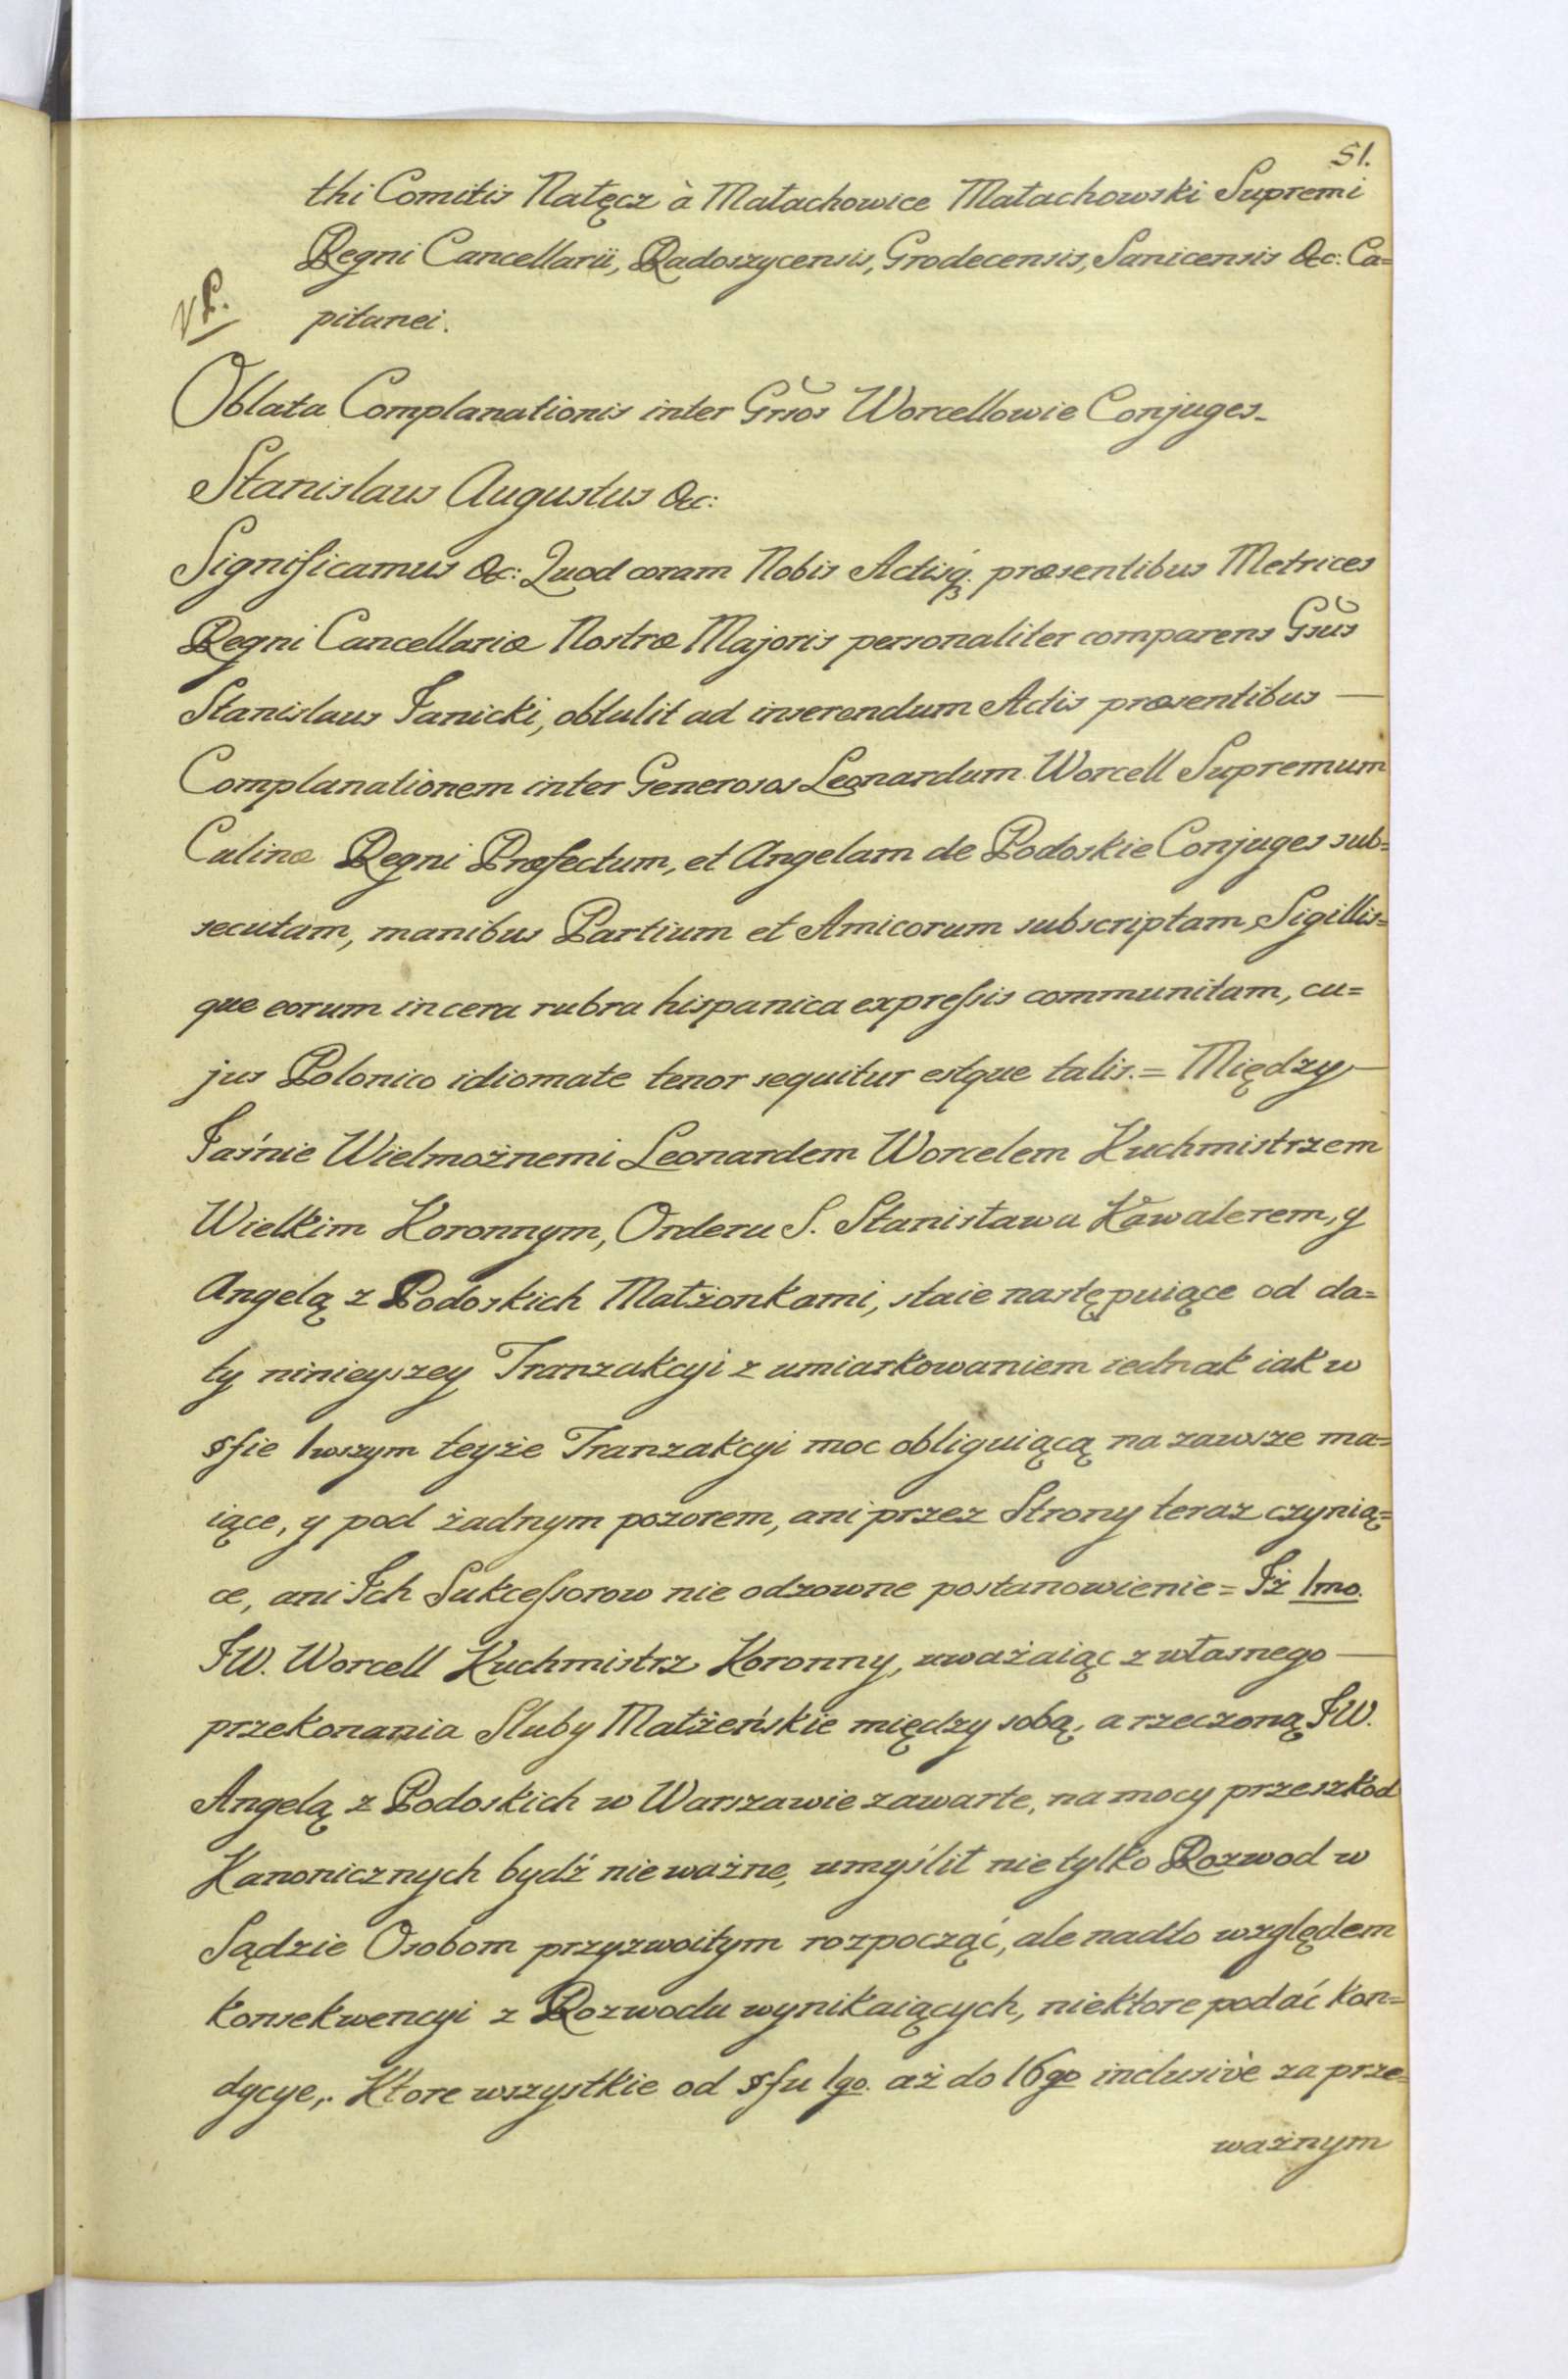 51.
thi Comitis Nałęcz à Małachowice Małachowski Supremi
Regni Cancellarii, Radoszycensis, Grodecensis, Sanicensis &c: Ca=
pitanei.
Oblata Complanationis inter Grsos Worcellowie Conjuges_
Stanislaus Augustus &c:
Significamus &c: Quod coram Nobis Actisq. præsentibus Metrices
Regni Cancellariæ Nostræ Majoris personaliter comparens Gsus
Stanislaus Janicki, obtulit ad inserendum Actis præsentibus —
Complanationem inter Generosos Leonardum Worcell Supremum
Culinæ Regni Præfectum, et Angelam de Podoskie Conjuges sub=
secutam, manibus Partium et Amicorum subscriptam, Sigillis=
que eorum in cera rubra hispanica expreſsis communitam, cu=
jus Polonico idiomate tenor sequitur estque talis. = Między —
Jaśnie Wielmożnemi Leonardem Worcelem Kuchmistrzem
Wielkim Koronnym, Orderu S. Stanisława Kawalerem, y
Angelą z Podoskich Małżonkami, staie następuiące od da=
ty ninieyszey Tranzakcyi z umiarkowaniem iednak iak w
§fie 1wszym teyże Tranzakcyi moc obliguiącą na zawsze ma=
iące, y pod żadnym pozorem, ani przez Strony teraz czynią=
ce, ani Ich Sukceſsorow nie odzowne postanowienie = Iż 1mo.
JW. Worcell Kuchmistrz Koronny, uważaiąc z własnego —
przekonania Sluby Małżeńskie między sobą, a rzeczoną JW.
Angelą z Podoskich w Warszawie zawarte, na mocy przeszkod
Kanonicznych bydź nie ważne, umyślił nie tylko Rozwod w
Sądzie Osobom przyzwoitym rozpocząć, ale nadto względem
konsekwencyi z Rozwodu wynikaiących, niektore podać kon=
dycye,. Ktore wszystkie od §fu 1go. aż do 16go inclusivè za prze=
ważnym